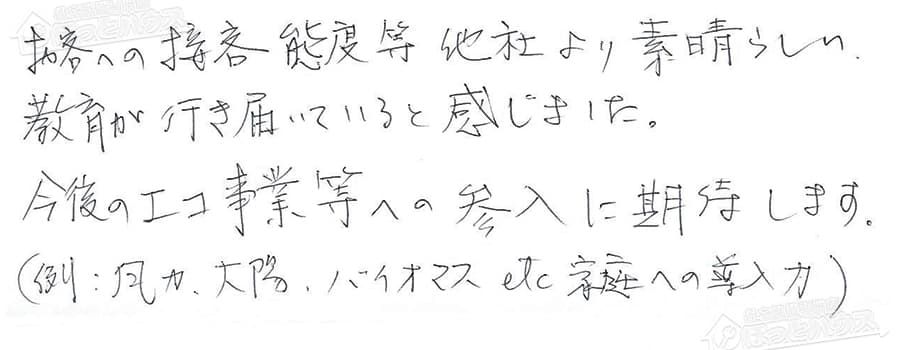 お客への接客態度等他社より素晴らしい、
教育が行き届いていると感じました。
今後のエコ事業等への参入に期待します。
(例:風力、太陽、バイオマス etc 家庭への導入力)